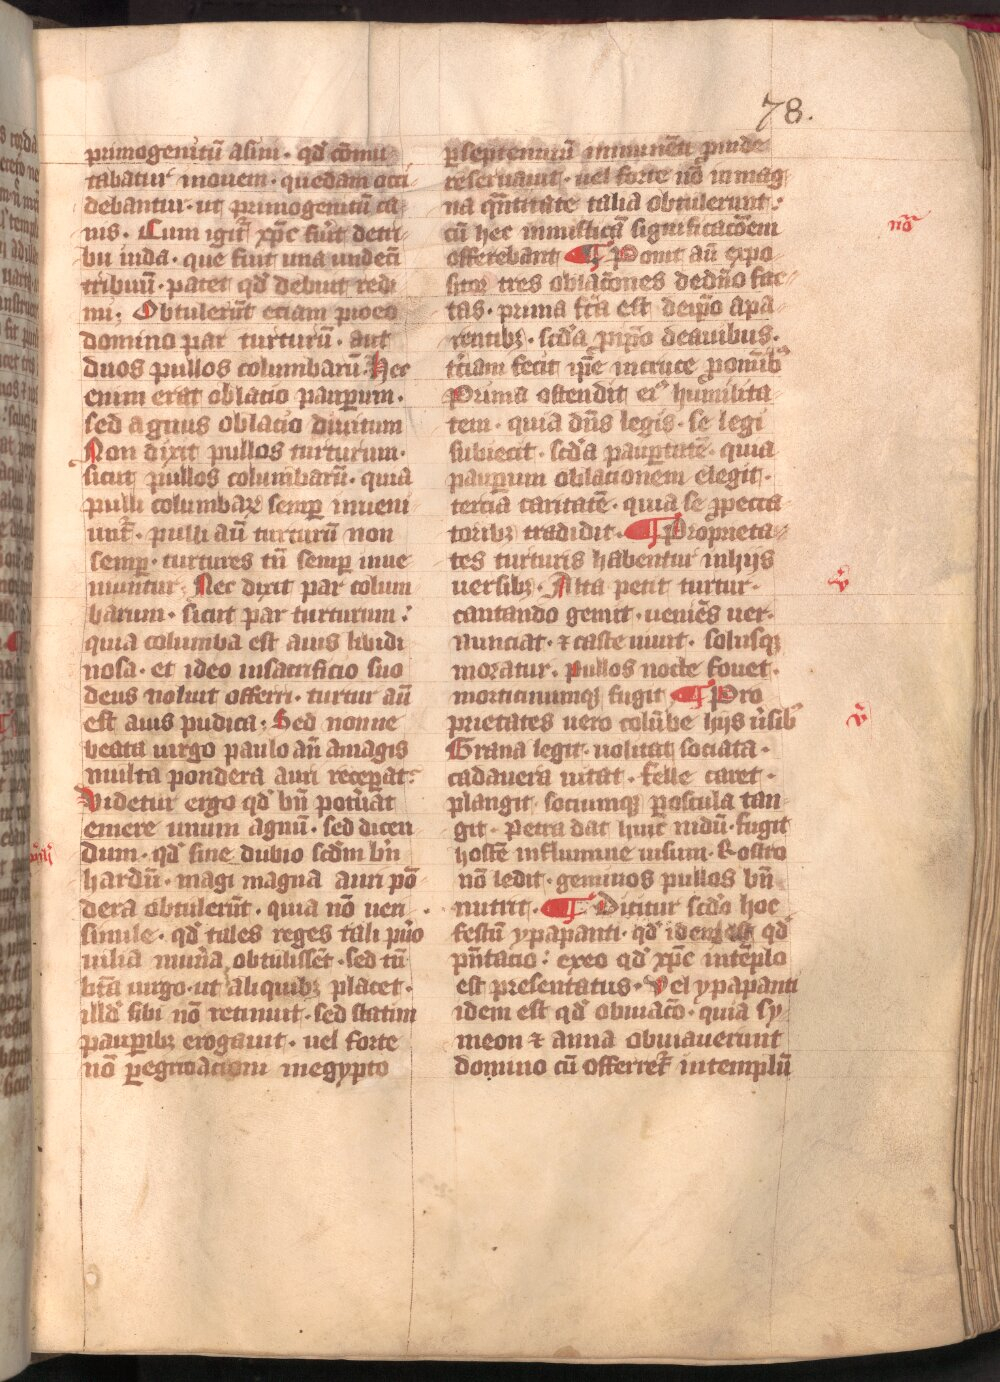 78.
primogenitū asini · qd̄ cōmu
tabatur in ouem · quedam occi
debantur · ut primogenitū ca
nis · Cum igit᷑ xp̄c fuit de tri
bu iuda · que fuit una undecī
tribuū · patet qd̄ debuit redi
mi · Obtulerūt eciam pro eo
domino par turturū · aut
duos pullos columbarū · Hec
enim erat oblatio pauꝑum ·
sed agnus oblatio diuitum
Non dixit pullos turturum ·
sicut pullos columbarū · quia
pulli columbaꝝ semꝑ inueni
unt᷑ · pulli aū turturū non
semꝑ · turtures tn̄ semꝑ inue
niuntur · Nec dixit par colum
barum · sicut par turturum :
quia columba est auis libidi
nosa · et ideo in sacrificio suo
deus noluit offerri · turtur aū
est auis pudica : Sed nonne
beata uirgo paulo an̄ a magis
multa pondera auri receꝑat :
Videtur ergo qd̄ bn̄ potuāt
emere unum agnū · sed dicen
dum · qd̄ sine dubio scdm̄ b̄n
hardū · magi magna auri pō
dera obtulerūt · quia nō ueri
simile · qd̄ tales reges tali puo
uilia mun̄a obtulissēt · sed tn̄
btā uirgo · ut aliquibꝫ placet ·
illd̄ sibi nō retinuit · sed statim
pauꝑibꝫ erogauit · uel forte
nō ꝑegrinationi in egypto
ꝑ septennium prouide
reseruauit · uel forte nō in mag
na qn̄titate talia obtulerunt :
cū hec in mistica significacōem
offerebant ¶ Ponit aū expo
sitor tres oblacōnes de dn̄o fac
tas · prima fc̄a est de ip̄o a pa
rentibꝫ · scd̄a ꝓ ip̄o de auibus ·
tciam fecit ip̄e in cruce ꝓ omībꝰ
Prima ostendit eiꝰ humilita
tem · quia dn̄s legis · se legi
subiecit · scd̄a pauꝑtatē · quia
pauꝑum oblationem elegit ·
tercia caritatē · quia se ꝓ pecca
toribꝫ tradidit · ¶ Proprieta
tes turturis habentur in hijs
uersibꝫ · Alta petit turtur ·
cantando gemit · ueniēs uer ·
nunciat · ⁊ caste uiuit · solusqꝫ
moratur · Pullos nocte fouet ·
morticinumqꝫ fugit ¶ Pro
prietates uero colūbe hijs ūsibꝰ
Grana legit · uolitat sociata ·
cadauera uitat · felle caret ·
plangit · sociumqꝫ ꝑ oscula tan
git · Petra dat huic nidū · fugit
hostē in flumine uisum · Rostro
nō ledit · geminos pullos bn̄
nutrit · ¶ Dicitur scd̄o hoc
festū ypapanti · qd̄ idem est qd̄
pn̄tacio : ex eo qd̄ xp̄c in tēplo
est presentatus · Vel ypapanti
idem est qd̄ obuiacō · quia sy
meon ⁊ anna obuiauerunt
domino cū offerret᷑ in templū